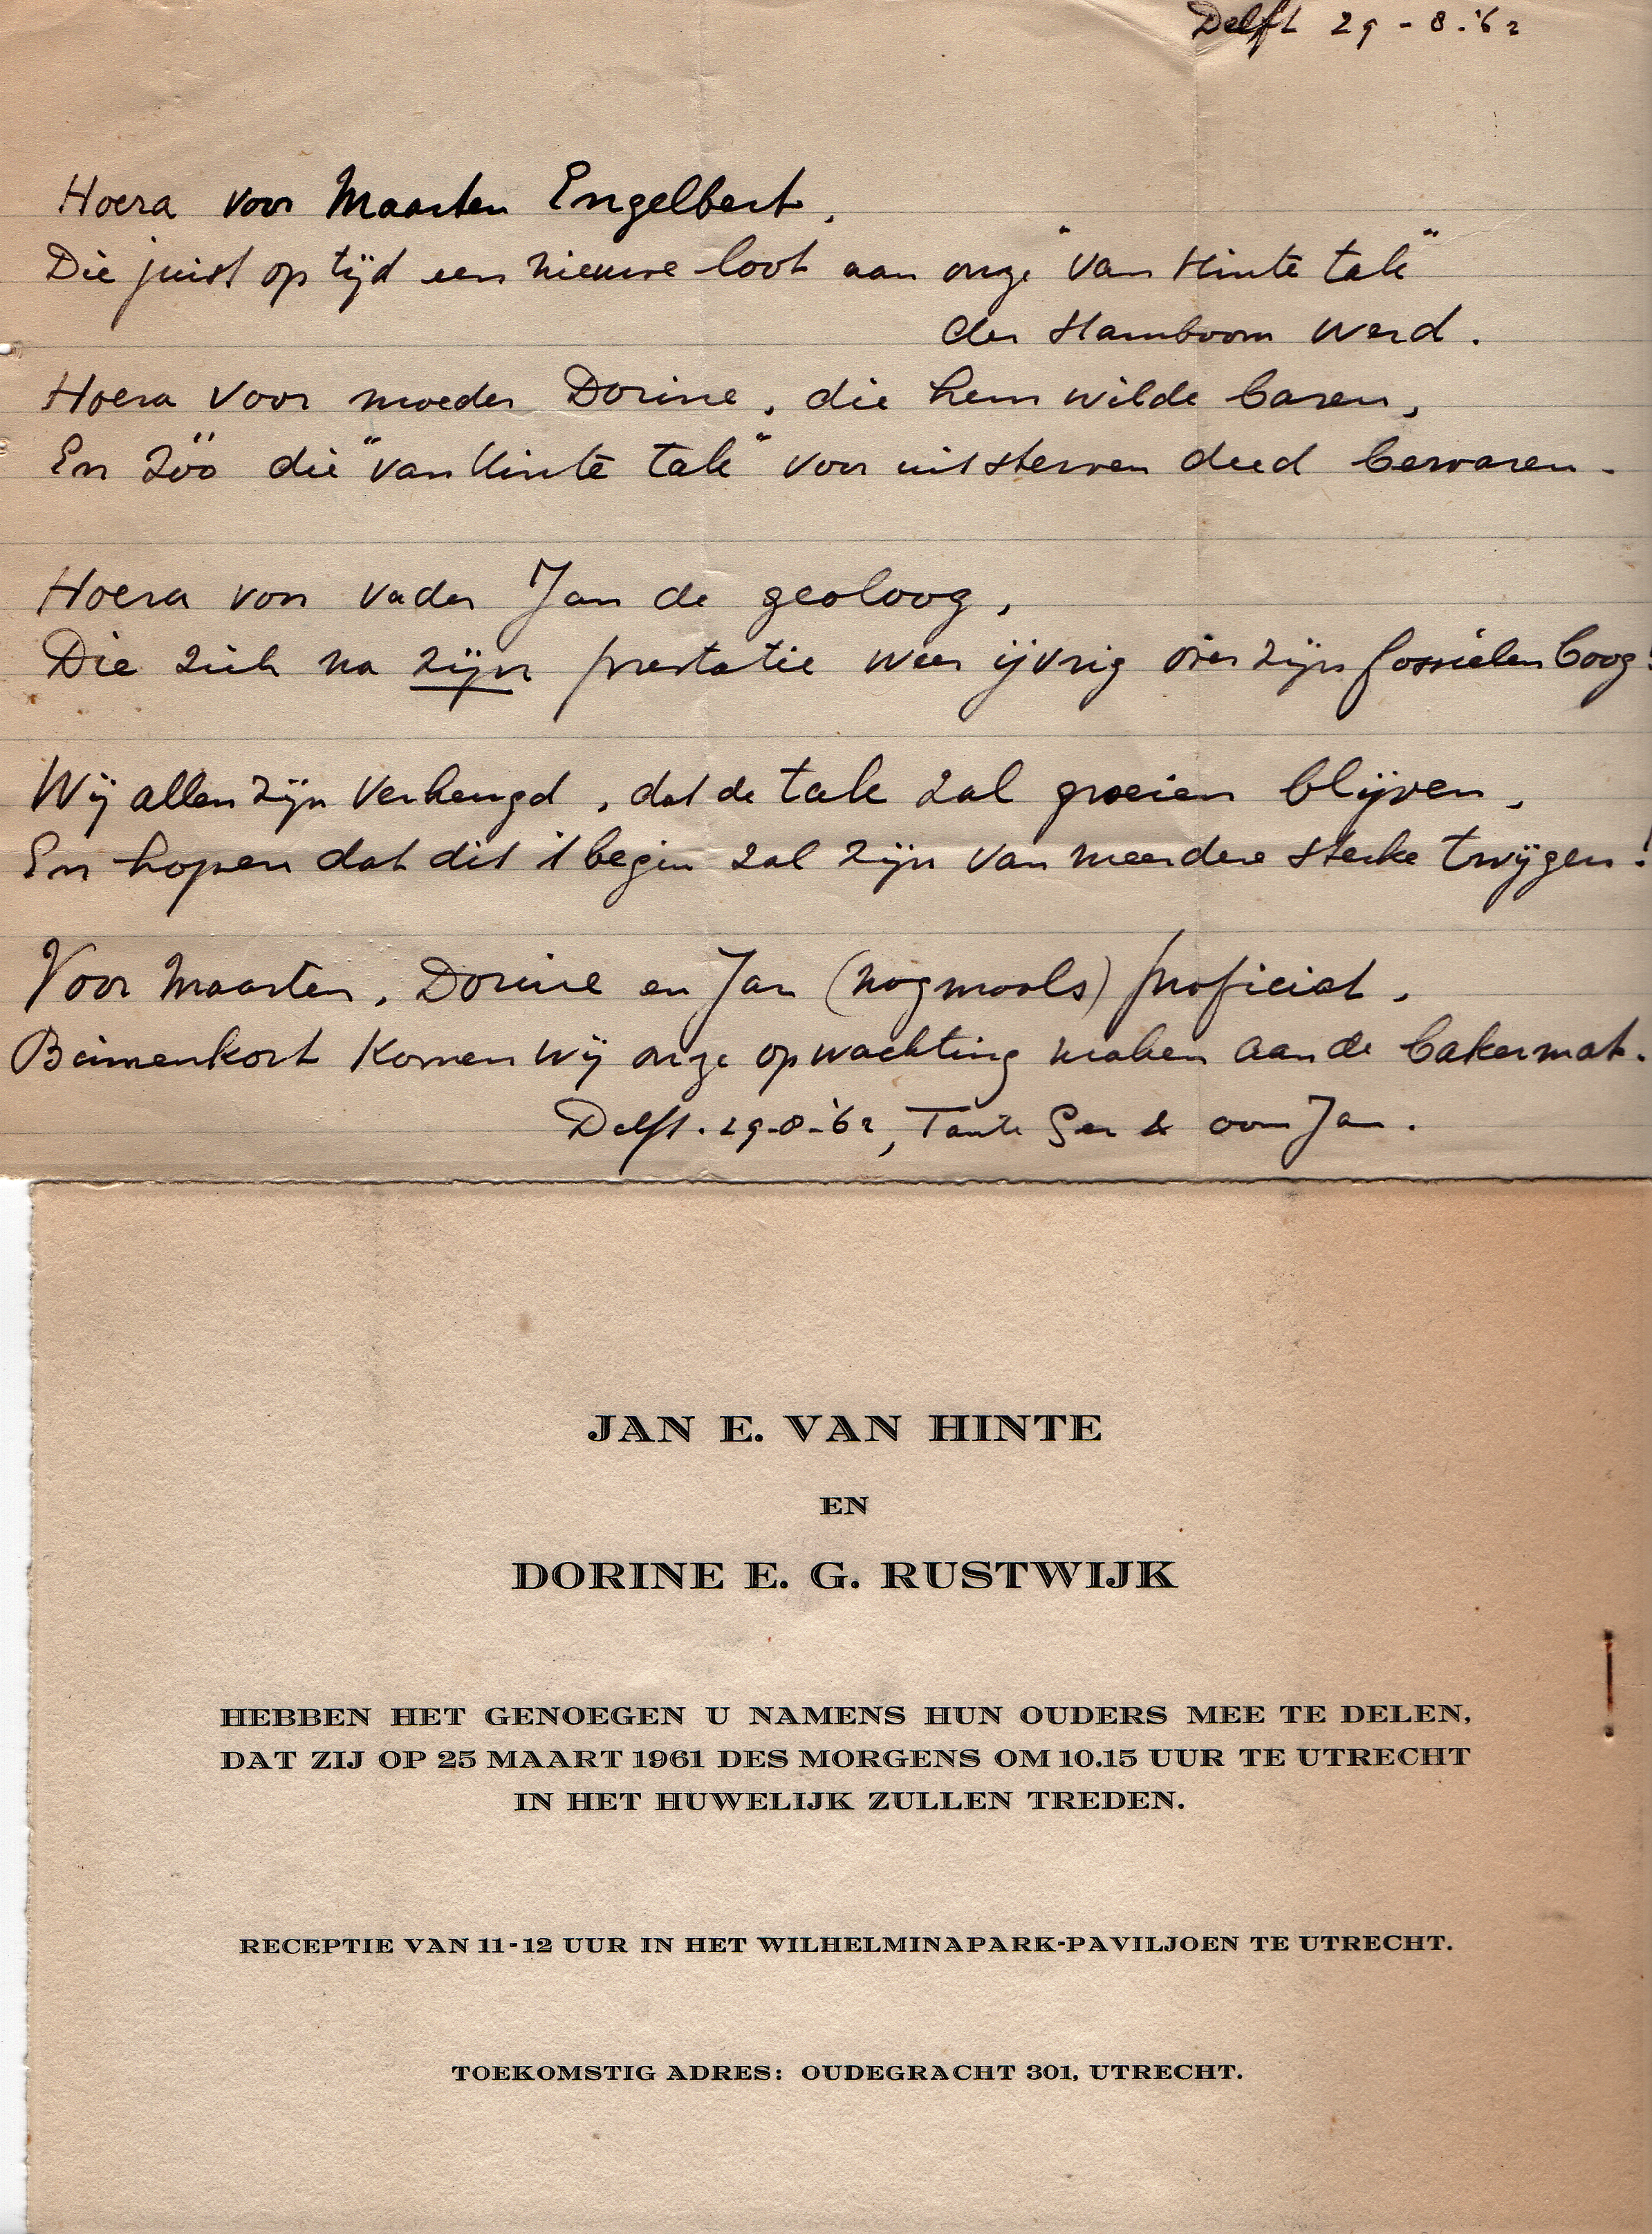 Delft 29-8.'62
Hoera voor Maarten Engelbert,
Die juist op tijd een nieuwe loot aan onze "van Hinte tak"
der stamboom werd.
Hoera voor moeder Dorine, die hem wilde baren,
En zóó die "van Hinte tak" voor uitsterven deed bewaren.
Hoera voor vader Jan de geoloog,
Die zich na zijn prestatie weer ijvrig over zijn fossielen boog!
Wij allen zijn verheugd, dat de tak zal groeien blijven,
En hopen dat dit 't begin zal zijn van meerdere sterke twijgen!
Voor Maarten, Dorine en Jan (nogmaals) proficiat,
Binnenkort komen wij onze opwachting maken aan de bakermat.
Delft. 29-8-'62, Tante Ger & oom Jan.
JAN E. VAN HINTE
EN
DORINE E. G. RUSTWIJK
HEBBEN HET GENOEGEN U NAMENS HUN OUDERS MEE TE DELEN,
DAT ZIJ OP 25 MAART 1961 DES MORGENS OM 10.15 UUR TE UTRECHT
IN HET HUWELIJK ZULLEN TREDEN.
RECEPTIE VAN 11-12 UUR IN HET WILHELMINAPARK-PAVILJOEN TE UTRECHT.
TOEKOMSTIG ADRES: OUDEGRACHT 301, UTRECHT.